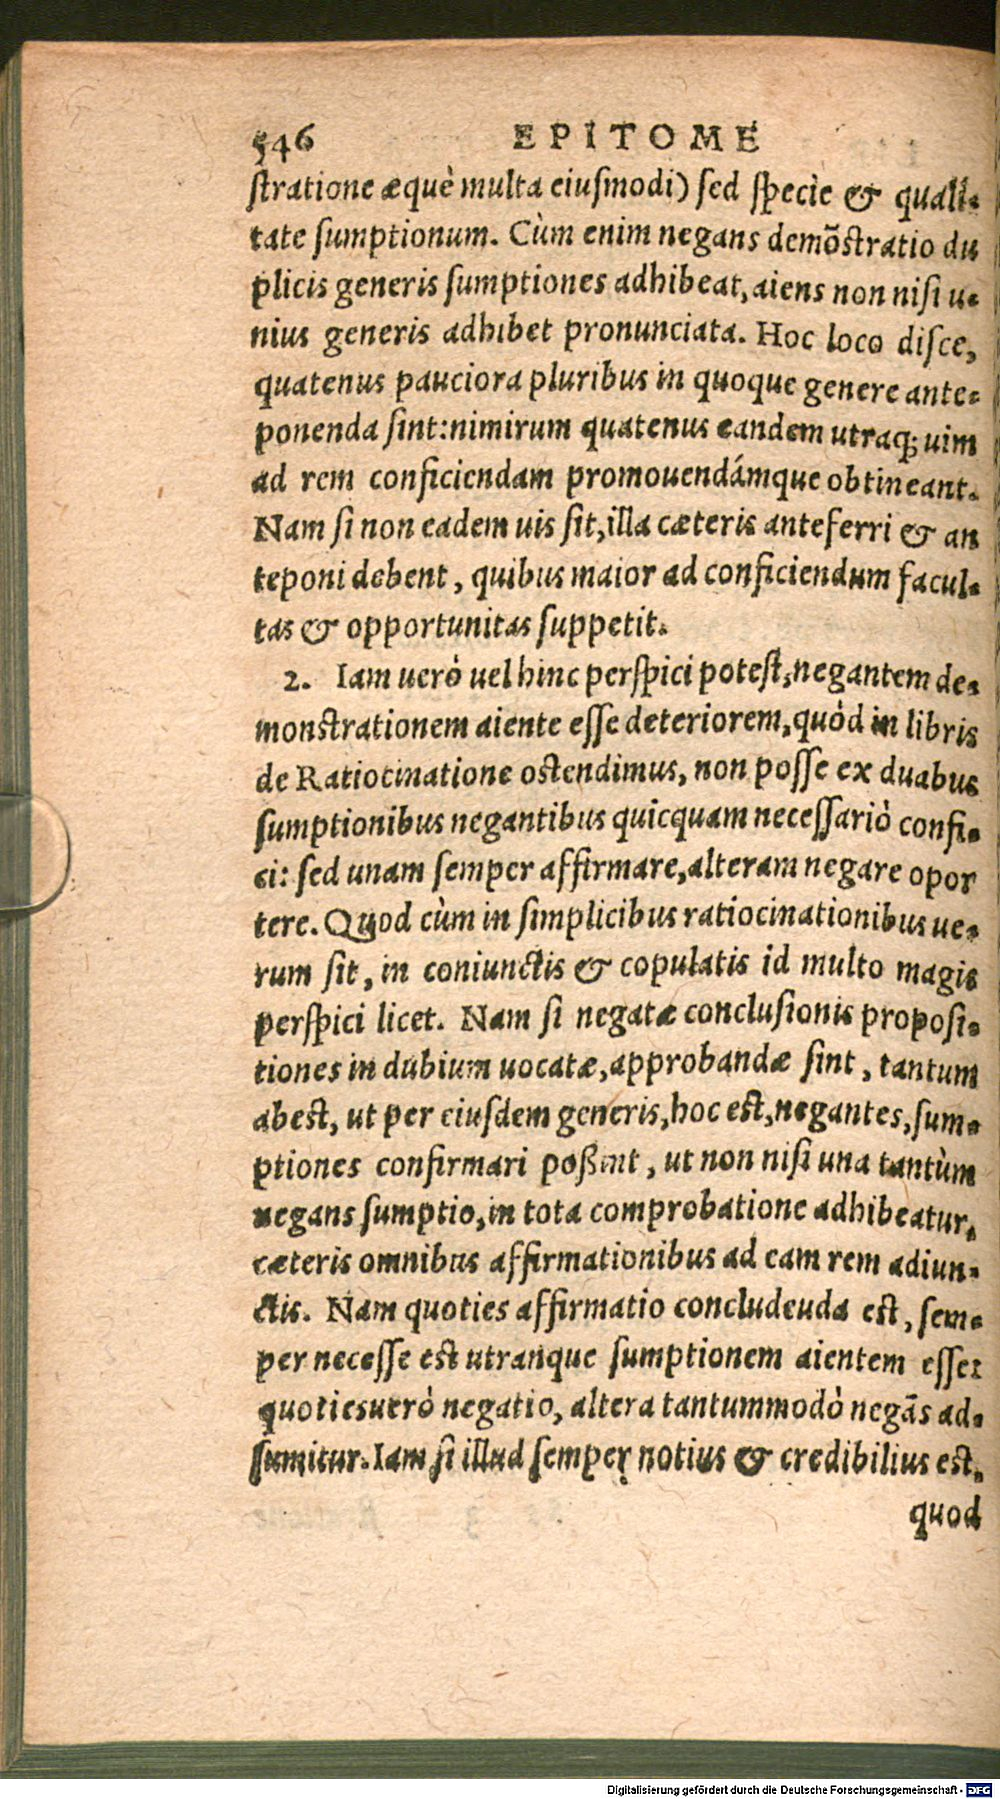 546 EPITOME
stratione æquè multa eiusmodi) sed specie & quali-
tate sumptionum. Cùm enim negans demõstratio du
plicis generis sumptiones adhibeat, aiens non nisi u-
nius generis adhibet pronunciata. Hoc loco disce,
quatenus pauciora pluribus in quoque genere ante-
ponenda sint: nimirum quatenus eandem utraq; uim
ad rem conficiendam promouendámque obtineant.
Nam si non eadem uis sit, illa cæteris anteferri & an
teponi debent, quibus maior ad conficiendum facul-
tas & opportunitas suppetit.
2. Iam uerò uel hinc perspici potest, negantem de-
monstrationem aiente esse deteriorem, quòd in libris
de Ratiocinatione ostendimus, non posse ex duabus
sumptionibus negantibus quicquam necessariò confi-
ci: sed unam semper affirmare, alteram negare opor
tere. Quod cùm in simplicibus ratiocinationibus ue-
rum sit, in coniunctis & copulatis id multo magis
perspici licet. Nam si negatæ conclusionis proposi-
tiones in dubium uocatæ, approbandæ sint, tantum
abest, ut per eiusdem generis, hoc est, negantes, sum-
ptiones confirmari poßint, ut non nisi una tantùm
negans sumptio, in tota comprobatione adhibeatur,
cæteris omnibus affirmationibus ad eam rem adiun-
ctis. Nam quoties affirmatio concludeuda est, sem-
per necesse est utranque sumptionem aientem esse:
quoties uerò negatio, altera tantummodò negãs ad-
sumitur. Iam si illud semper notius & credibilius est,
quod
Digitalisierung gefördert durch die Deutsche Forschungsgemeinschaft - DFG